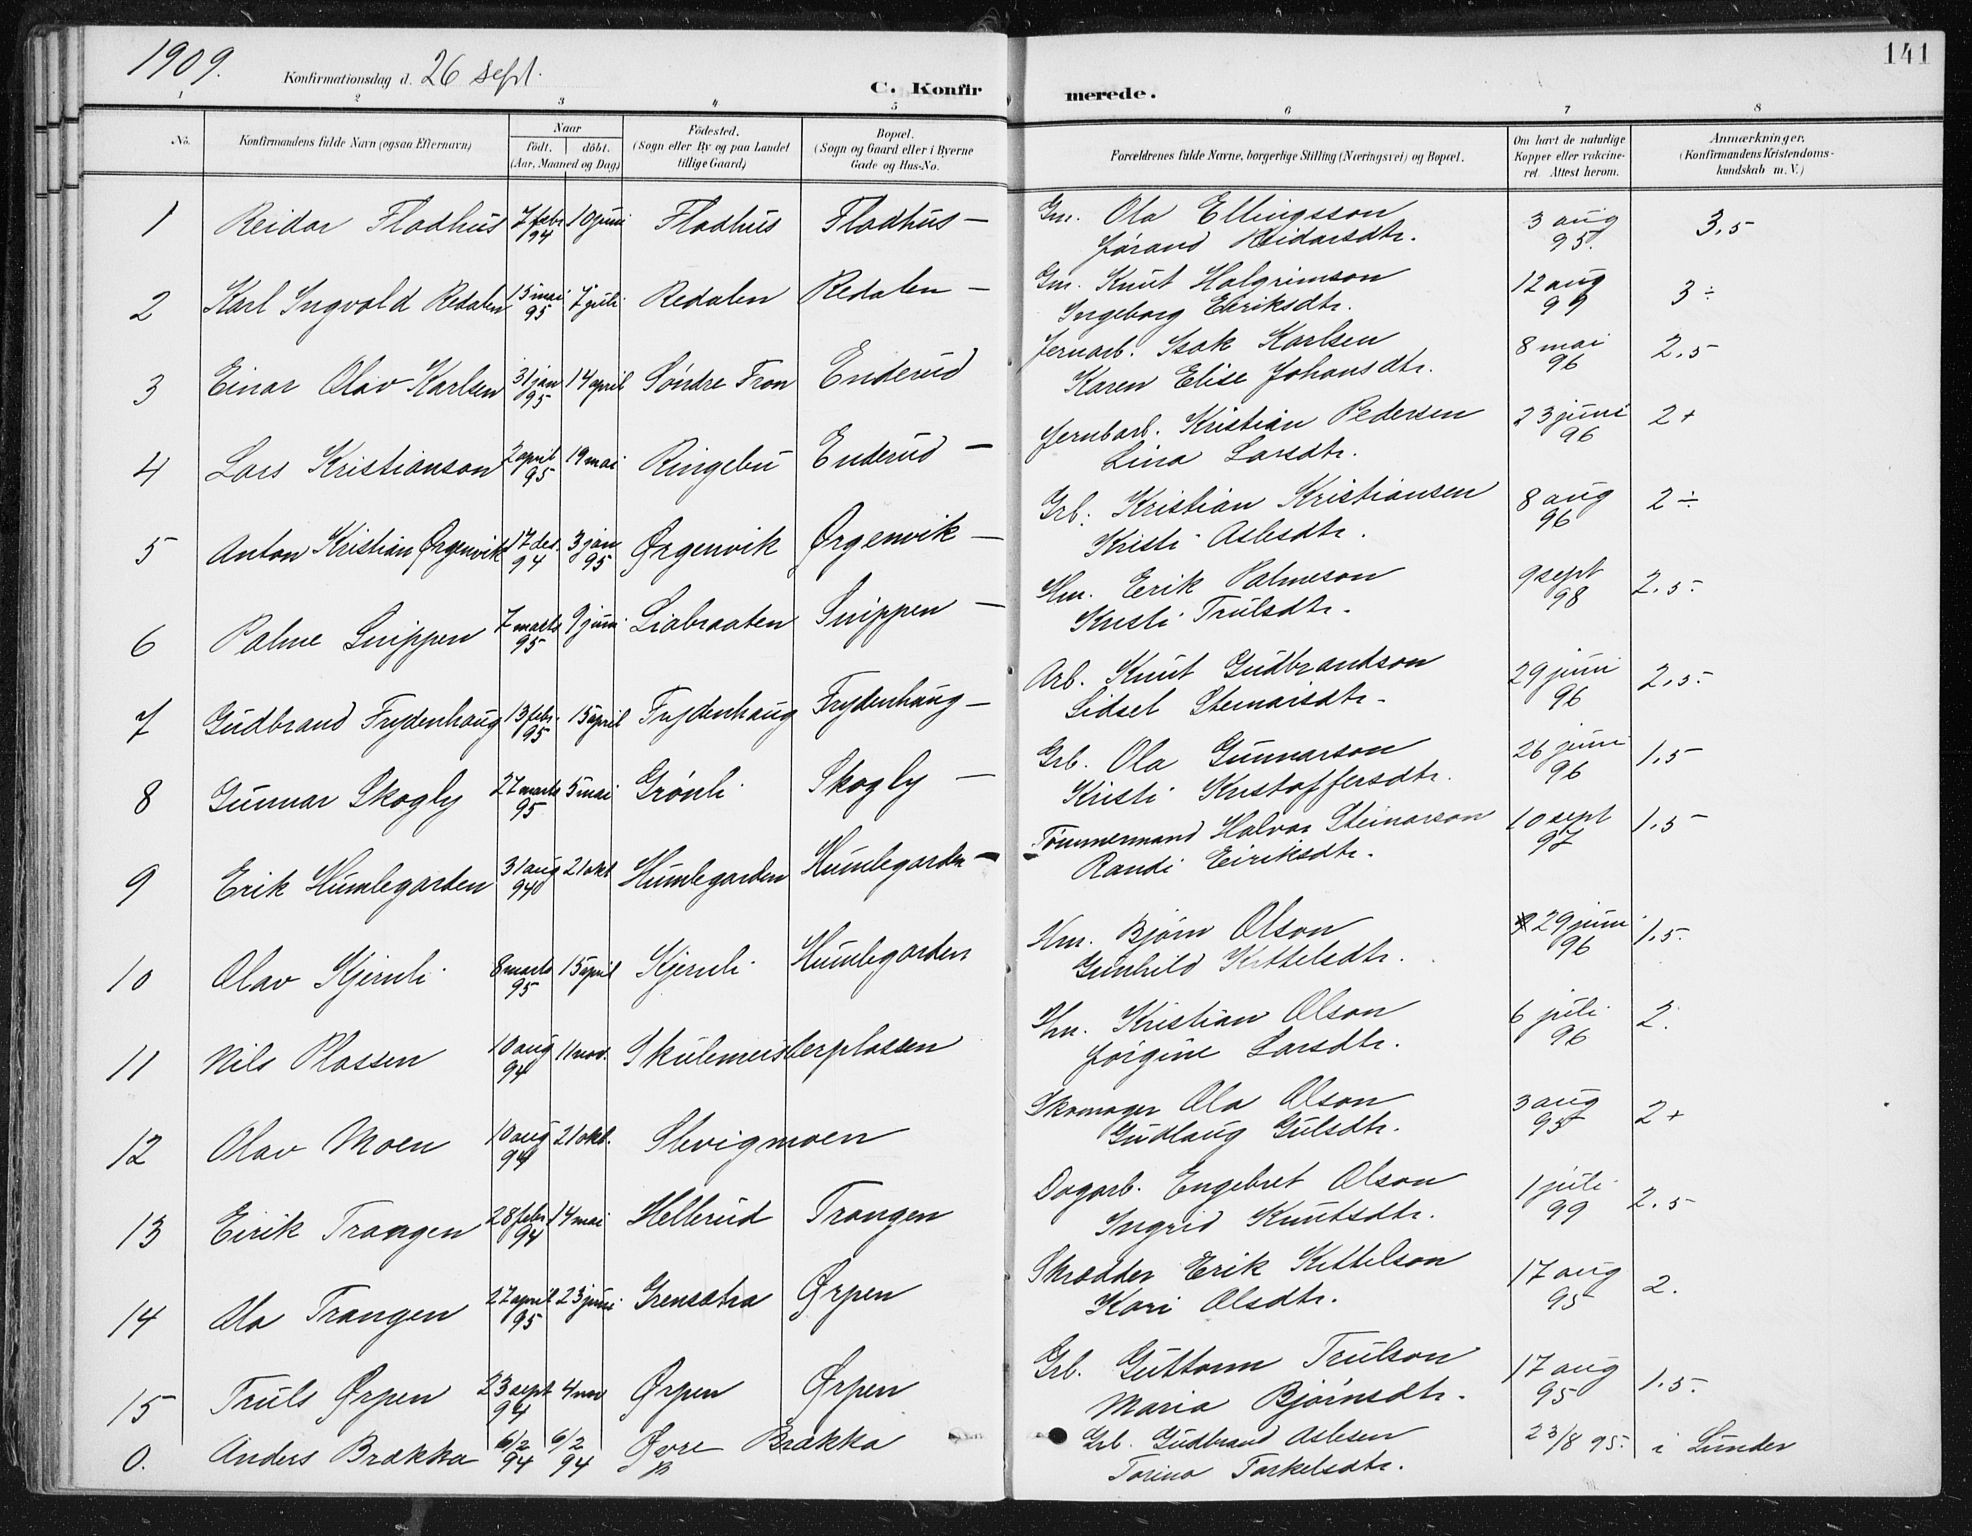 1909.
141
Konfirmationsdag d. 26 sept.
C. Konfirmerede.
1 2 3 4 5 6 7 8
No. Konfirmandens fulde Navn (ogsaa Efternavn) Naar født. døbt. (Aar, Maaned og Dag) Fødested. (Sogn eller By og paa Landet tillige Gaard) Bopæl. (Sogn og Gaard eller i Byerne Gade og Hus-No. Forældrenes fulde Navne, borgerlige Stilling (Næringsvei) og Bopæl. Om havt de naturlige Kopper eller vakcineret. Attest herom. Anmærkninger. (Konfirmandens Kristendomskundskab m. V.)
1 Reidar Flodhus 7 febr 94 10 juni Flodhus Flodhus – Gm. Ola Ellingsson 3 aug 95. 3,5
Jørand Reidarsdtr.
2 Karl Ingvald Redalen 15 mai 95 7 juli Redalen Redalen – Gm. Knut Halgrimson 12 aug 99 3÷
Ingeborg Eeriksdtr.
3 Einar Olav Karlsen 31 jan 95 14 april Søndre Fron Enderud Jernarb. Isak Karlsen 8 mai 96 2.5
Karen Elise Johansdtr.
4 Lars Kristianson 2 april 95 19 mai Ringebu Enderud – Jernbarb. Kristian Pedersen 23 juni 96 2+
Lina Larsdtr.
5 Anton Kristian Ørgenvik 17 des. 94 3 jan 95 Ørgenvik Ørgenvik – Grb. Kristian Kristiansen 8 aug 96 2÷
Kristi Aslesdtr.
6 Palme Snippen 7 marts 95 9 juni Liabraaten Snippen – Hm. Eerik Palmeson 9 sept 98 2.5.
Kristi Trulsdtr.
7 Gudbrand Frydenhaug 13 febr. 95 15 april Frydenhaug Frydenhaug – Arb. Knut Gudbrandson 29 juni 96 2.5.
Sidsel Steinarsdtr.
8 Gunnar Skogly 27 marts 95 5 mai Grønli Skogly – Grb. Ola Gunnarson 26 juni 96 1.5
Kristi Kristoffersdtr.
9 Erik Humlegarden 31 aug 94 21 okt Humlegarden Humlegarden – Tømmermand Halvor Steinarson 10 sept 97 1.5
Randi Eiriksdtr.
10 Olav Kjernli 8 marts 95 15 april Kjernli Humlegarden Hm. Bjørn Olson 29 juni 96 1.5.
Gunhild Kittelsdtr.
11 Nils Plassen 10 aug 94 11 nov. Skulemeisterplassen Hm. Kristian Olson 6 juli 96 2.
Jørgine Larsdtr.
12 Olav Moen 10 aug 94 21 okt. Slevigmoen Skomager Ola Olson 3 aug 95 2+
Gudlaug Gulsdtr.
13 Eirik Trangen 28 febr 94 14 mai Hellerud Trangen Dagarb. Engebret Olson 1 juli 99 2.5
Ingrid Knutsdtr.
14 Ola Trangen 27 april 95 23 juni Grensatra Ørpen Skrædder Erik Kittelson 17 aug 95 2.
Kari Olsdtr.
15 Truls Ørpen 23 sept 94 4 nov Ørpen Ørpen Grb. Guttorm Trulson 17 aug 95 1.5.
Maria Bjørnsdtr.
0. Anders Brækka 6/2 94 6/2 94 Øvre Brækka Grb. Gudbrand Aslesen 23/8 95. i Lunder
Torina Torkelsdtr.